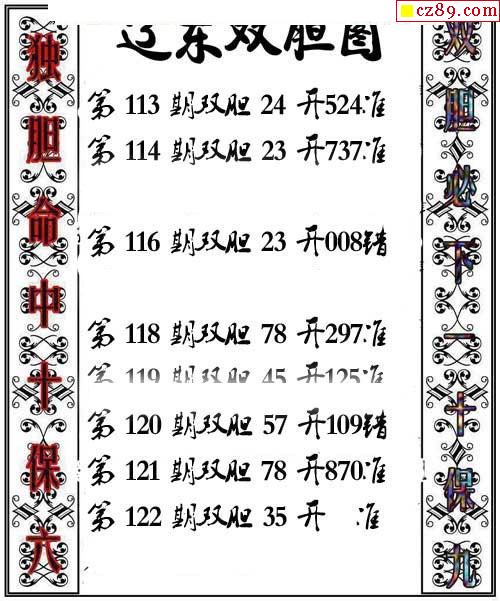 cz89.com
辽东双胆图
独胆命中十保六
第 113 期双胆 24 开524准
第 114 期双胆 23 开737准
第 116 期双胆 23 开008错
第 118 期双胆 78 开297准
第 119 期双胆 45 开125准
第 120 期双胆 57 开109错
第 121 期双胆 78 开870准
第 122 期双胆 35 开 准
双胆必下一十保九